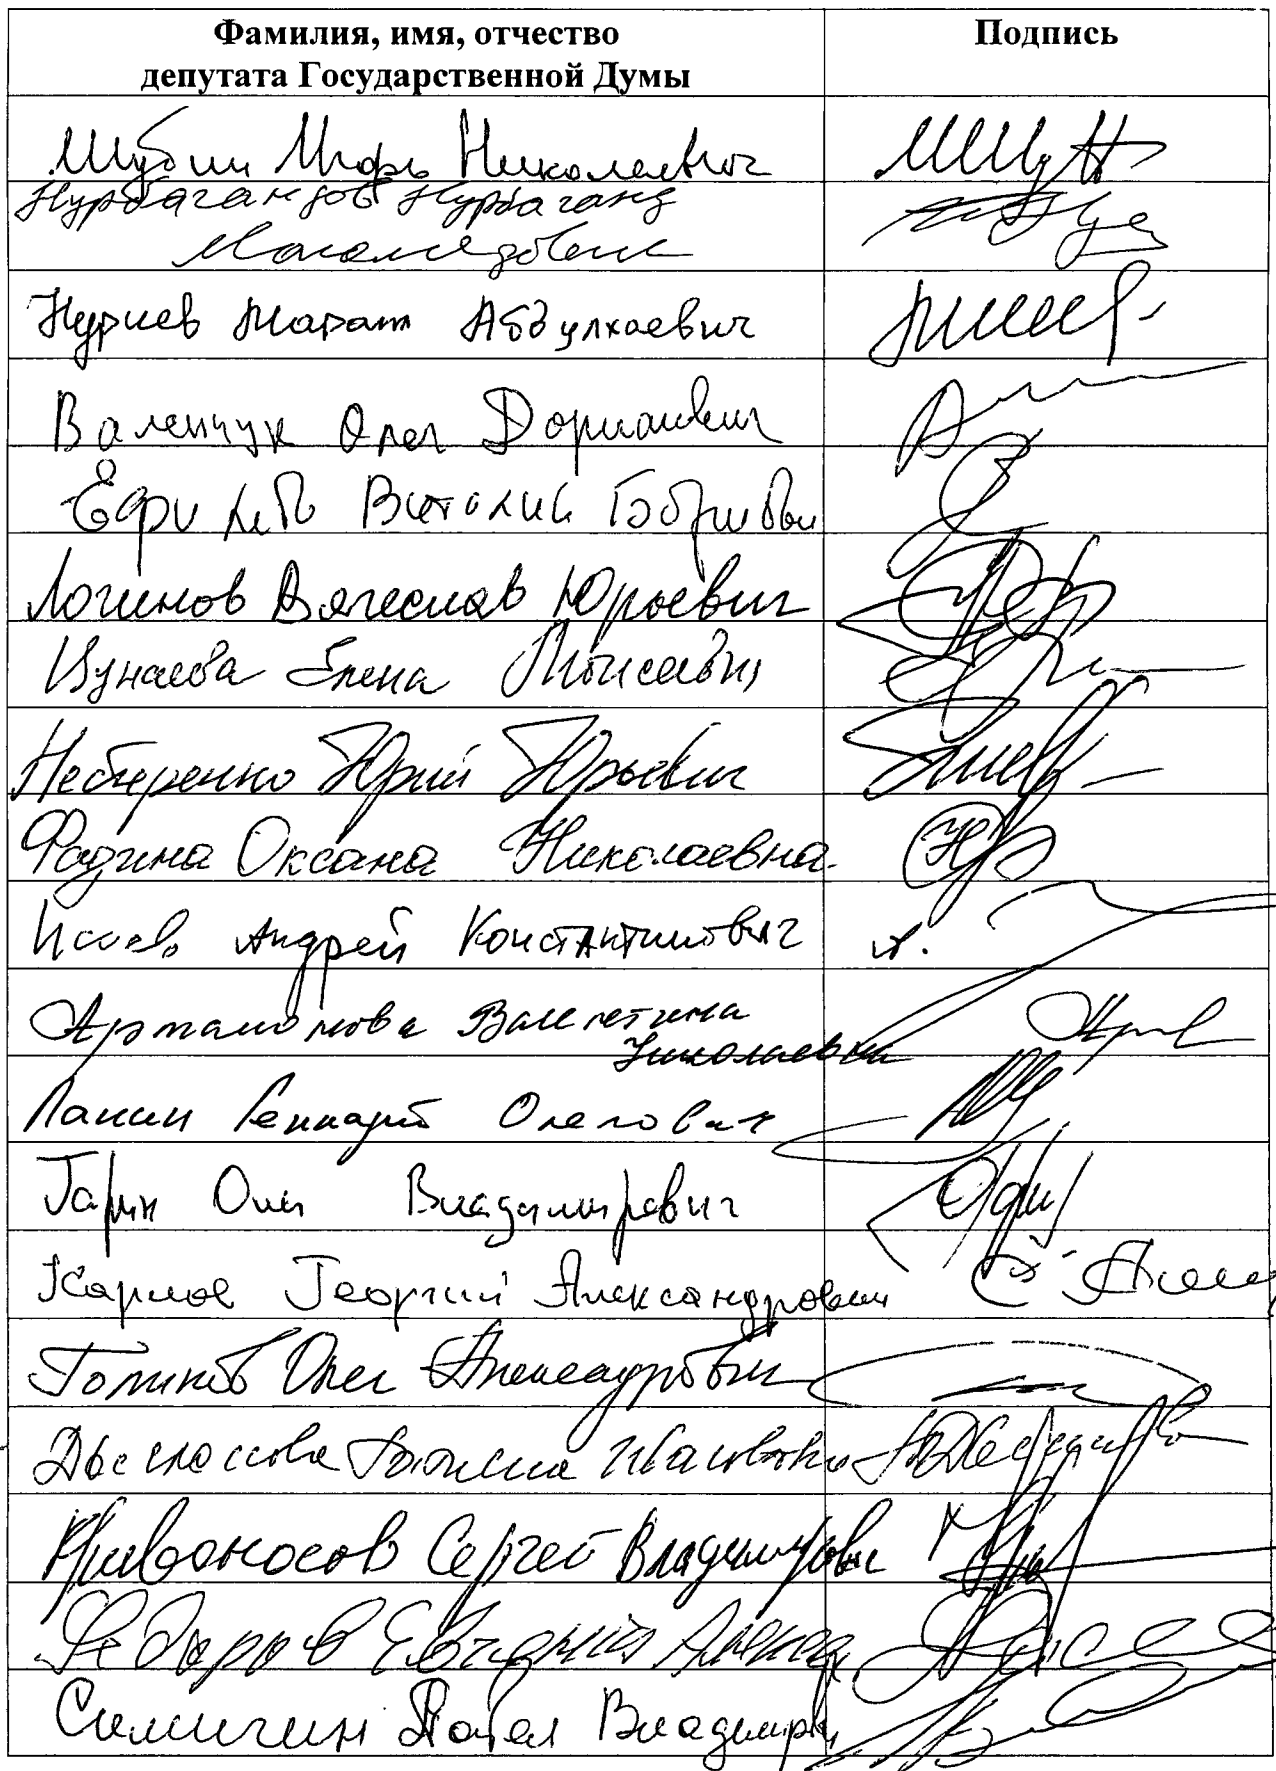 Фамилия, имя, отчество
депутата Государственной Думы
Подпись
Шубин Игорь Николаевич
Нурбагандов Нурбаганд
Магомедович
Нуриев Марат Абдулхаевич
Валенчук Олег Дорианович
Ефимов Виталий Борисович
Логинов Вячеслав Юрьевич
Цунаева Елена Моисеевна
Нестеренко Юрий Юрьевич
Фадина Оксана Николаевна
Исаев Андрей Константинович
Артамонова Валентина
Николаевна
Панин Геннадий Олегович
Гарин Олег Владимирович
Карлов Георгий Александрович
Голиков Олег Александрович
Ивановна
Кривоносов Сергей Владимирович
Федоров Евгений Алексе
Симигин Павел Владимирович